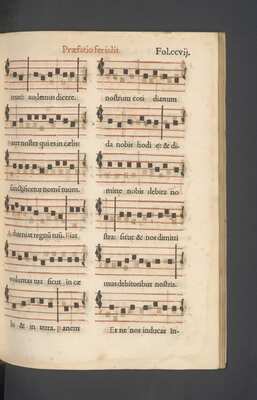 Præfatio ferialis.
Fol.ccvij.
mur: audemus dicere.
Pater noster qui es in cælis:
sanctificetur nomē tuum.
Adueniat regnū tuū. Fiat
voluntas tua sicut in cæ
lo & in terra. panem
nostrum coti dianum
da nobis hodi e: & di-
mitte nobis debita no
stra: sicut & nos dimitti
mus debitoribus nostris.
Et ne nos inducas in-